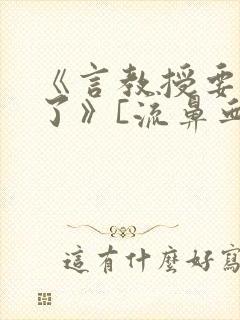 《言教授要
了》[流鼻血
這有什麼好寫